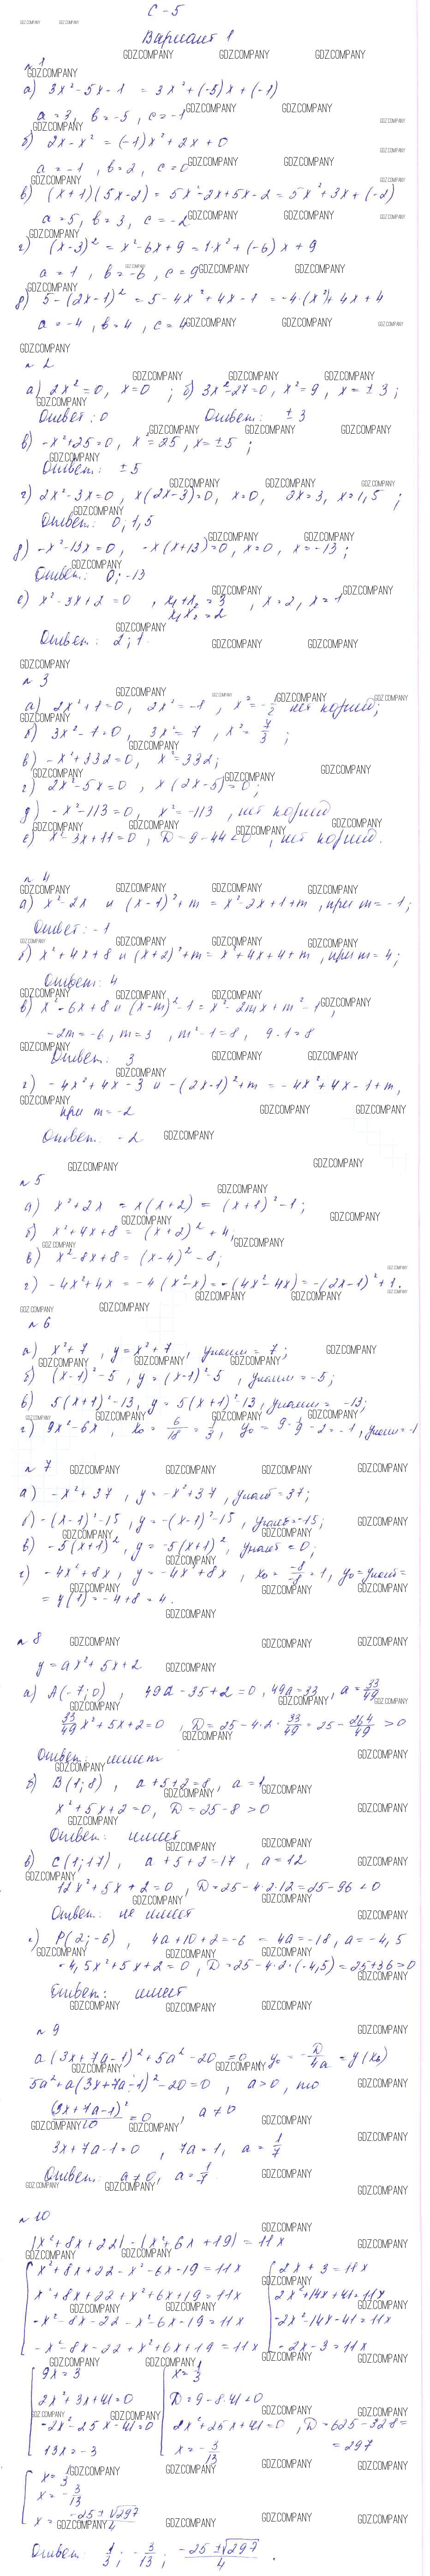 С-5
Вариант 1
№1
а) 3x²-5x-1 = 3x²+(-5)x+(-1)
a=3, b=-5, c=-1
б) 2x-x² = (-1)x²+2x+0
a=-1, b=2, c=0
в) (x+1)(5x-2) = 5x²-2x+5x-2 = 5x²+3x+(-2)
a=5, b=3, c=-2
г) (x-3)² = x²-6x+9 = 1·x²+(-6)x+9
a=1, b=-6, c=9
д) 5-(2x-1)² = 5-4x²+4x-1 = -4·(x²)+4x+4
a=-4, b=4, c=4
№2
а) 2x²=0, x=0 ; б) 3x²-27=0, x²=9, x=±3;
Ответ: 0 Ответ: ±3
в) -x²+25=0, x²=25, x=±5;
Ответ: ±5
г) 2x²-3x=0, x(2x-3)=0, x=0, 2x=3, x=1,5;
Ответ: 0; 1,5
д) -x²-13x=0, -x(x+13)=0, x=0, x=-13;
Ответ: 0; -13
е) x²-3x+2=0, x₁+x₂=3, x=2, x=1
x₁x₂=2
Ответ: 2; 1.
№3
а) 2x²+1=0, 2x²=-1, x²=-1/2 нет корней;
б) 3x²-7=0, 3x²=7, x²=7/3;
в) -x²+332=0, x²=332;
г) 2x²-5x=0, x(2x-5)=0;
д) -x²-113=0, x²=-113, нет корней
е) x²-3x+11=0, D=9-44<0, нет корней.
№4
а) x²-2x и (x-1)²+m = x²-2x+1+m, при m=-1;
Ответ: -1
б) x²+4x+8 и (x+2)²+m = x²+4x+4+m, при m=4;
Ответ: 4
в) x²-6x+8 и (x-m)²-1 = x²-2mx+m²-1,
-2m=-6, m=3, m²-1=8, 9-1=8
Ответ: 3
г) -4x²+4x-3 и -(2x-1)²+m = -4x²+4x-1+m,
при m=-2
Ответ: -2
№5
а) x²+2x = x(x+2) = (x+1)²-1;
б) x²+4x+8 = (x+2)²+4;
в) x²-8x+8 = (x-4)²-8;
г) -4x²+4x = -4(x²-x) = -(4x²-4x) = -(2x-1)²+1.
№6
а) x²+7, y=x²+7, yнаим=7;
б) (x-1)²-5, y=(x-1)²-5, yнаим=-5;
в) 5(x+1)²-13, y=5(x+1)²-13, yнаим=-13;
г) 9x²-6x, x₀=6/18=1/3, y₀=9·1/9-2=-1, yнаим=-1
№7
а) -x²+37, y=-x²+37, yнаиб=37;
б) -(x-1)²-15, y=-(x-1)²-15, yнаиб=-15;
в) -5(x+1)², y=-5(x+1)², yнаиб=0;
г) -4x²+8x, y=-4x²+8x, x₀=-8/-8=1, y₀=yнаиб=
=y(1)=-4+8=4.
№8
y=ax²+5x+2
а) A(-7;0), 49a-35+2=0, 49a=33, a=33/49
33/49x²+5x+2=0, D=25-4·2·33/49=25-264/49>0
Ответ: имеет
б) B(1;8), a+5+2=8, a=1
x²+5x+2=0, D=25-8>0
Ответ: имеет
в) C(1;17), a+5+2=17, a=12
12x²+5x+2=0, D=25-4·2·12=25-96<0
Ответ: не имеет
г) P(2;-6), 4a+10+2=-6 = 4a=-18, a=-4,5
-4,5x²+5x+2=0, D=25-4·2·(-4,5)=25+36>0
Ответ: имеет
№9
a(3x+7a-1)²+5a²-20=0, y₀=-D/4a=y(x₀)
5a²+a(3x+7a-1)²-20=0, a>0, то
(3x+7a-1)²/20=0, a≠0
3x+7a-1=0, 7a=1, a=1/7
Ответ: a≠0, a=1/7
№10
|x²+8x+22|-|x²+6x+19|=11x
x²+8x+22-x²-6x-19=11x 2x+3=11x
x²+8x+22+x²+6x+19=11x 2x²+14x+41=11x
-x²-8x-22-x²-6x-19=11x -2x²-14x-41=11x
-x²-8x-22+x²+6x+19=11x -2x-3=11x
9x=3 x=1/3
2x²+3x+41=0 D=9-8·41<0
-2x²-25x-41=0 2x²+25x+41=0, D=625-328=
13x=-3 x=-3/13 =297
x=1/3
x=-3/13
x=-25±√297/4
Ответ: 1/3; -3/13; -25±√297/4.